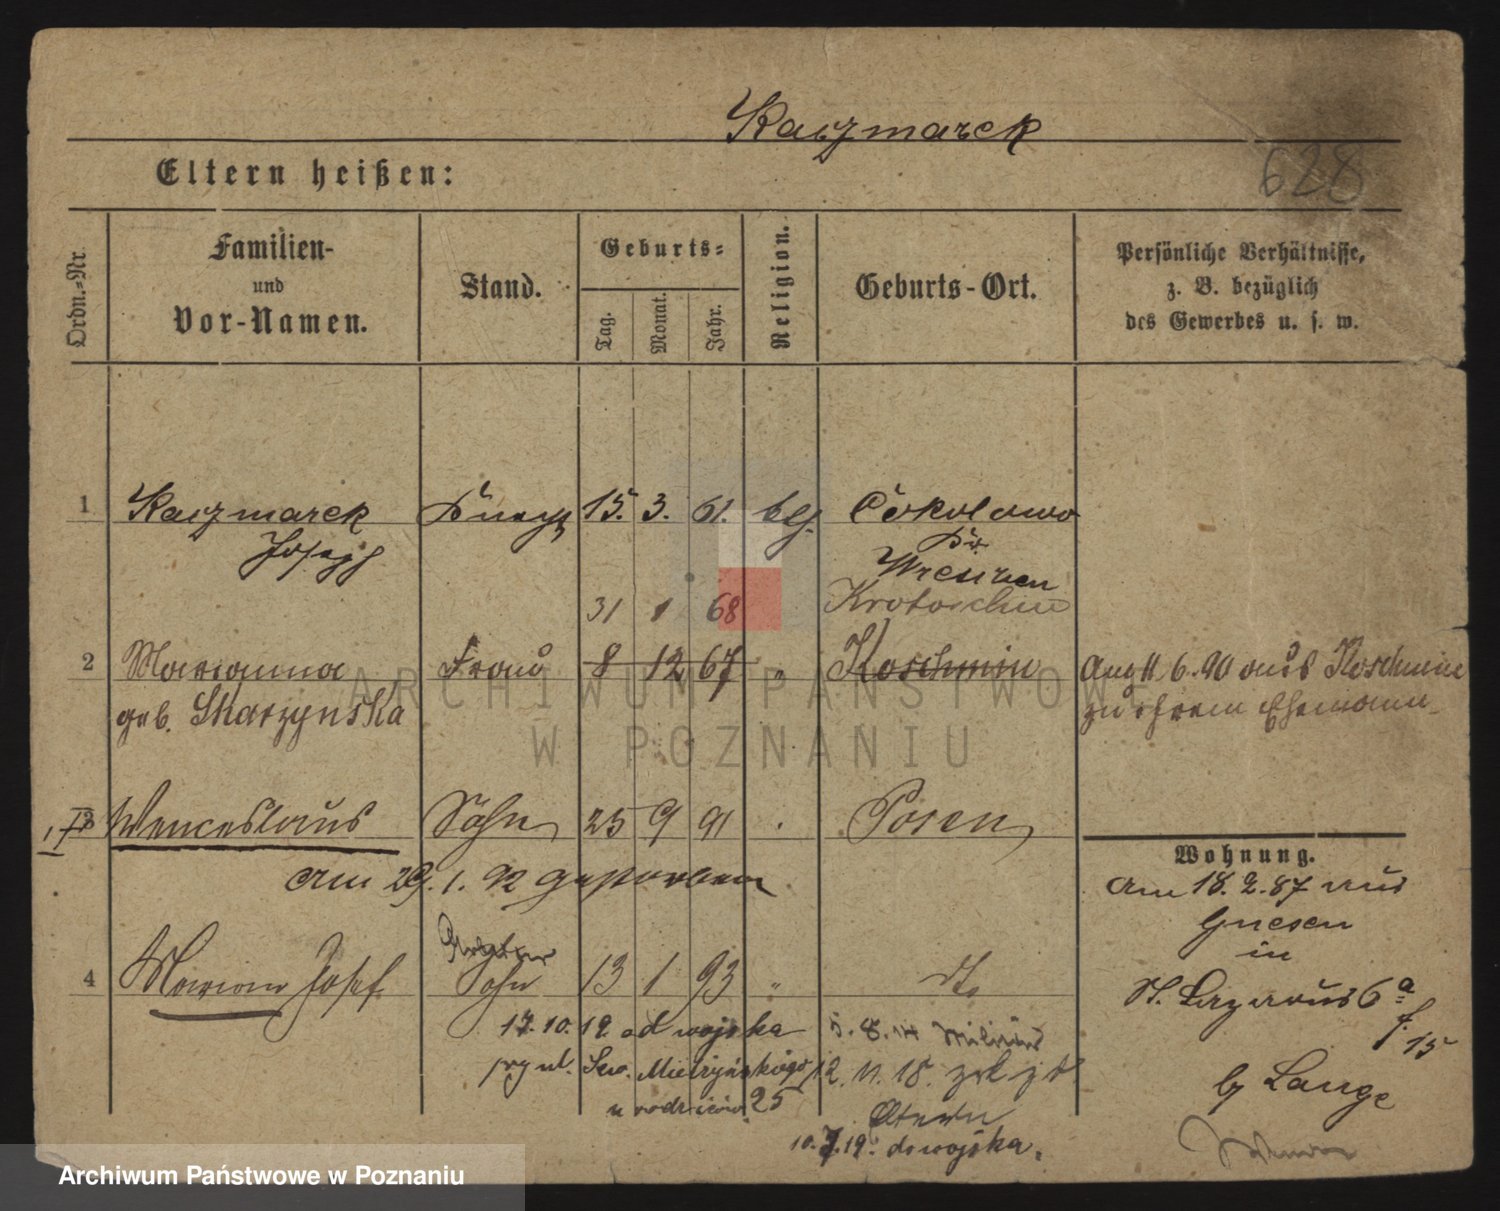 Kaczmarek
628
Eltern heißen:
Ordn.-Nr.
Familien-
und
Vor-Namen.
Stand.
Geburts-
Tag.
Monat.
Jahr.
Religion.
Geburts-Ort.
Persönliche Verhältnisse,
z. B. bezüglich
des Gewerbes u. s. w.
1 Kaczmarek 15. 3. 61. Cokolowo
Joseph
Wreschen
31 1 68 Krotoschin
2 Marianna Frau 8 12 67 " Koschmin Ang 11.6.90 aus Koschmin
geb. Skarzynska zu ihrem Ehemann
3 Wenceslaus Sohn 25 9 91 Posen
Am 29.1.92 gestorben
Wohnung.
Am 18.2.87 aus
Gnesen
in
St. Lazarus 6a
15
b Lange
4 Marian Josef Sohn 13 1 93 " dto
17.10.19. od wojska 5.8.14 Militär
przy ul. Św. Mielżyńskiego 12.11.18. zrk
u rodziców. 25 Eltern
10.7.19. do wojska.
ARCHIWUM PAŃSTWOWE
W POZNANIU
Archiwum Państwowe w Poznaniu